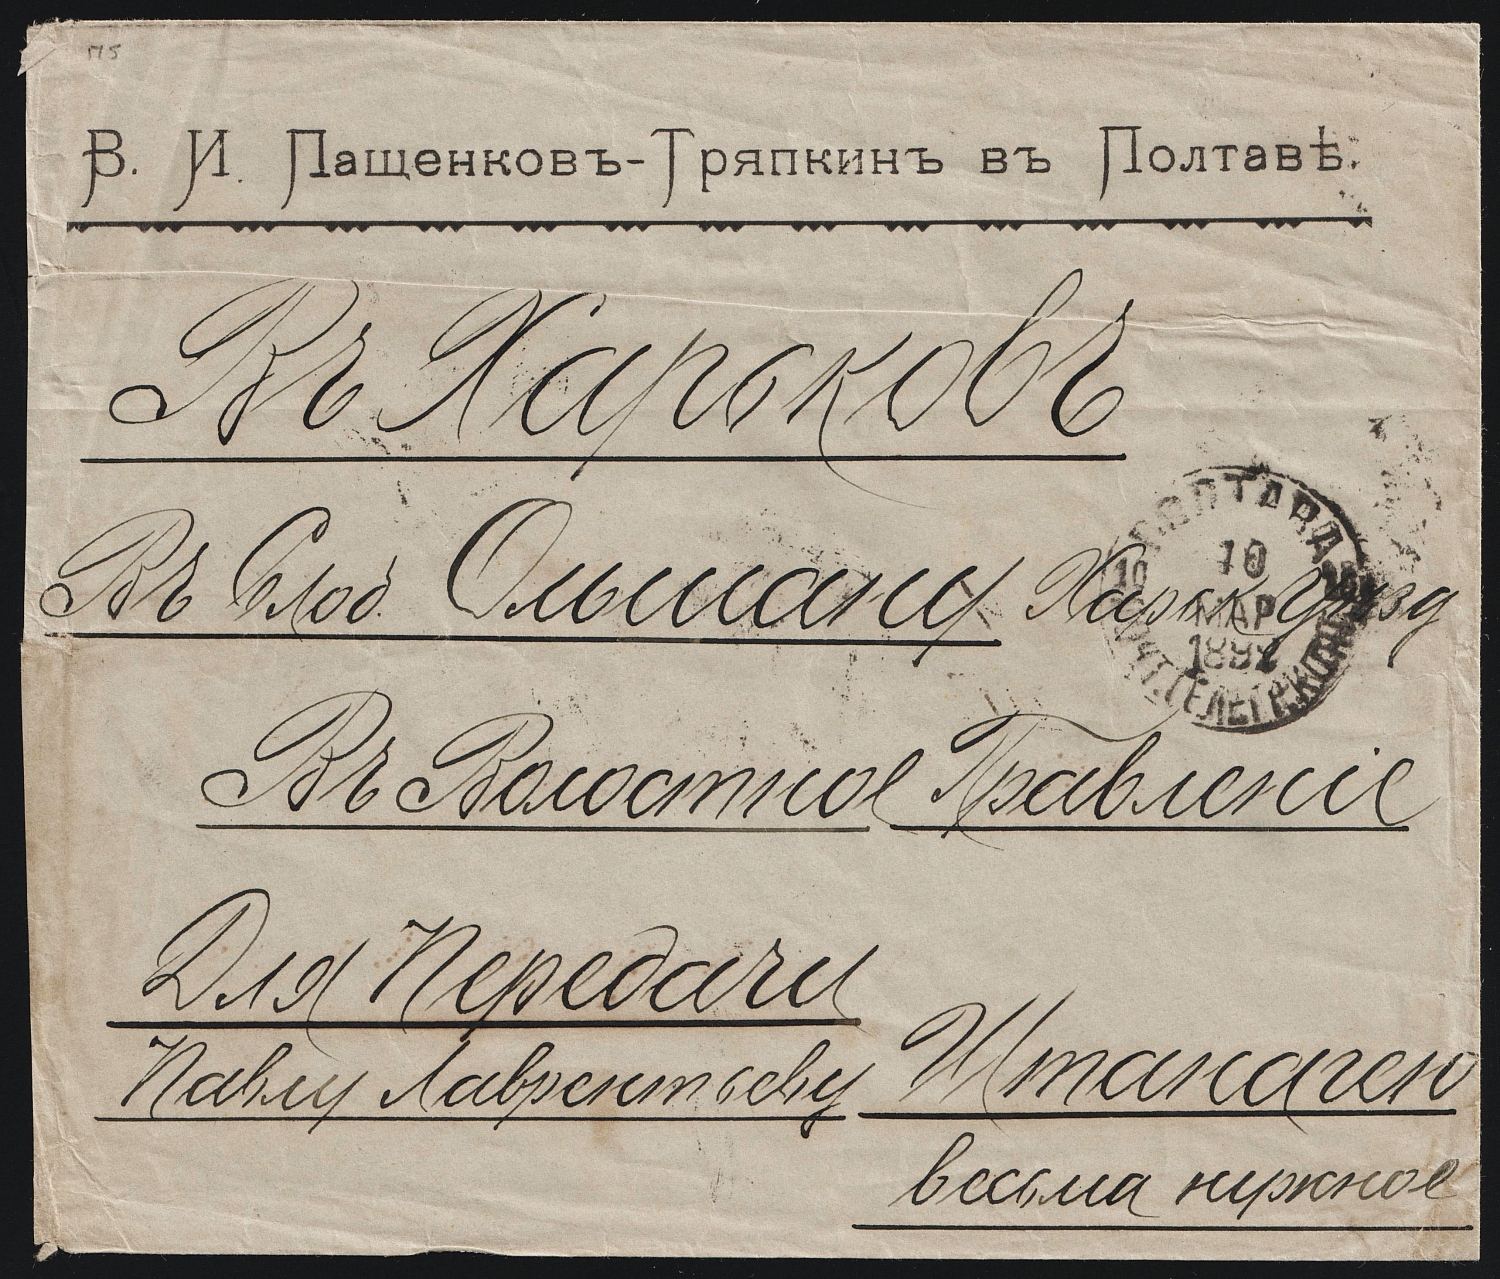 В. И. Пащенковъ-Тряпкинъ въ Полтавѣ.
Въ Харьковъ
Въ Слоб. Ольшану Харьк уѣзд
ПОЛТАВА
10
10
МАР
189
ПОЧТ.ТЕЛЕГР.КОНТ
Въ Волостное Правленіе
Для Передачи
Павлу Лаврентьеву
весьма нужное